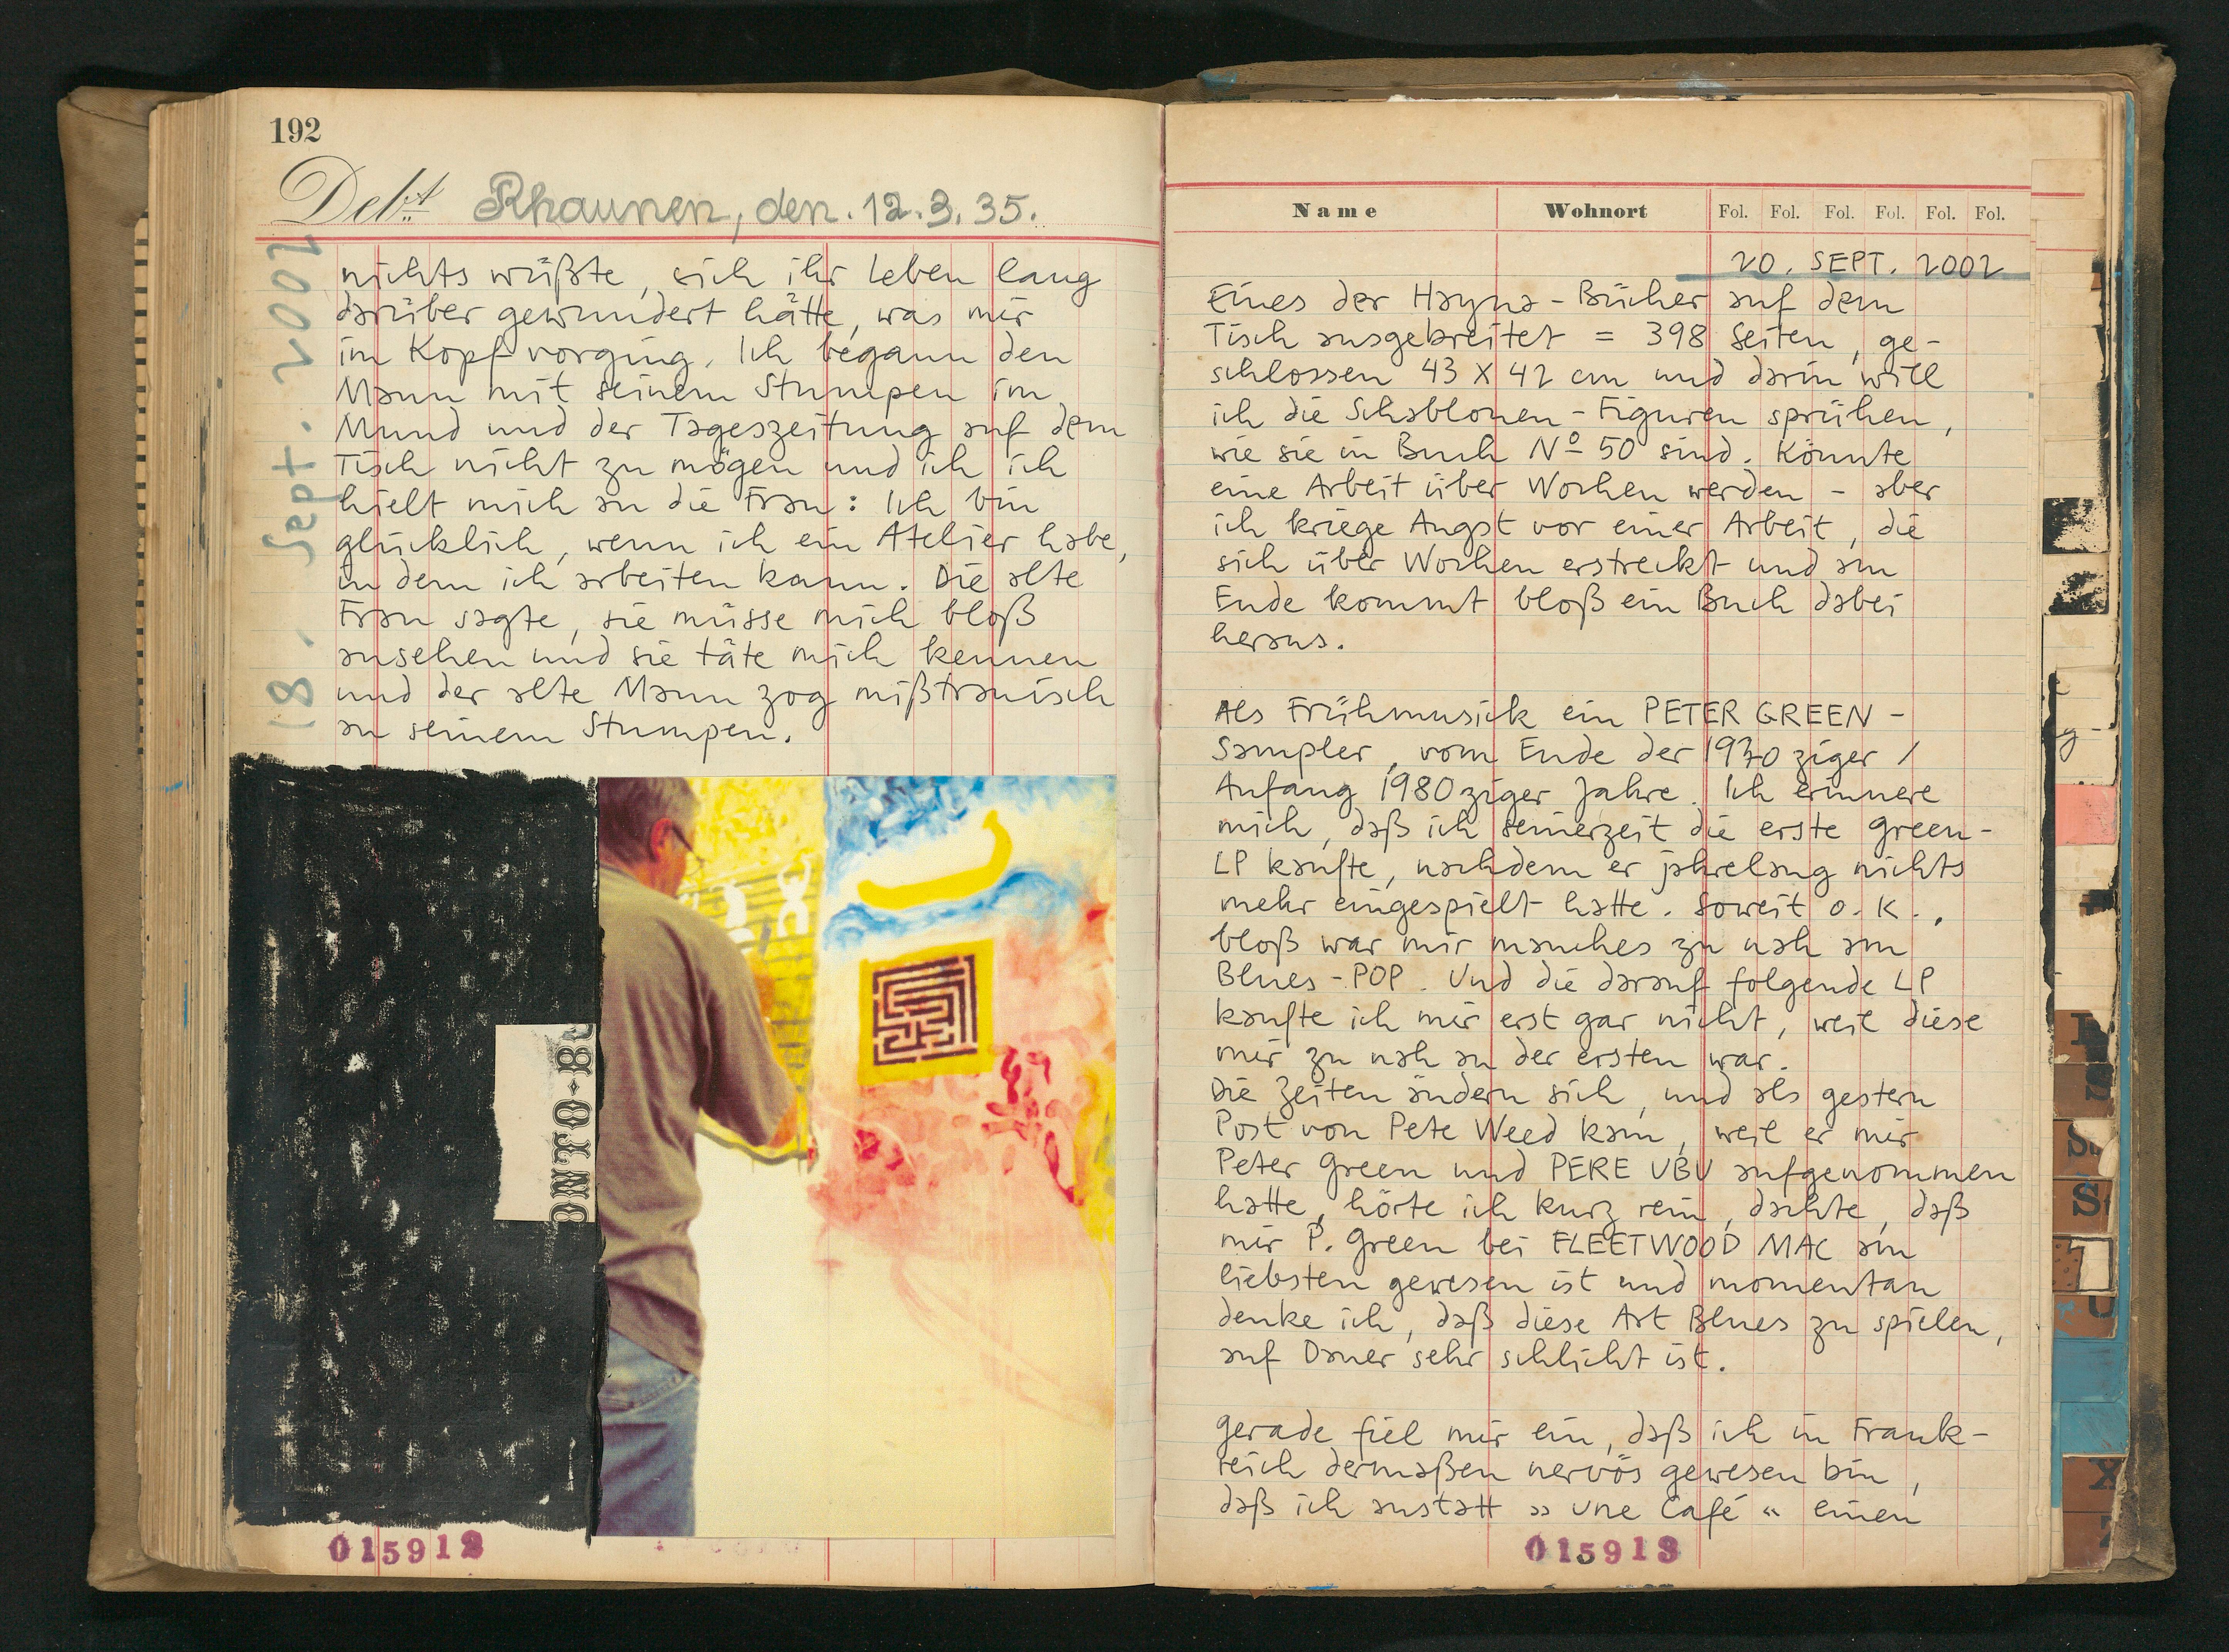 192
Debt Rhaunen, den. 12.3.35.
18. Sept. 2002
nichts wüßte, sich ihr Leben lang
darüber gewundert hätte, was mir
im Kopf vorging. Ich begann den
Mann mit seinem Stumpen im
Mund und der Tageszeitung auf dem
Tisch nicht zu mögen und ich ich
hielt mich an die Frau: Ich bin
glücklich, wenn ich ein Atelier habe,
in dem ich arbeiten kann. Die alte
Frau sagte, sie müsse mich bloß
ansehen und sie täte mich kennen
und der alte Mann zog mißtrauisch
an seinem Stumpen.
015912
Name Wohnort Fol. Fol. Fol. Fol. Fol. Fol.
20. SEPT. 2002
Eines der Hayna-Bücher auf dem
Tisch ausgebreitet = 398 Seiten, ge-
schlossen 43 X 42 cm und darin will
ich die Schablonen-Figuren sprühen,
wie sie in Buch Nº 50 sind. Könnte
eine Arbeit über Wochen werden - aber
ich kriege Angst vor einer Arbeit, die
sich über Wochen erstreckt und am
Ende kommt bloß ein Buch dabei
heraus.
Als Frühmusick ein PETER GREEN -
Sampler, vom Ende der 1970 ziger /
Anfang 1980 ziger Jahre. Ich erinnere
mich, daß ich seinerzeit die erste Green-
LP kaufte, nachdem er jahrelang nichts
mehr eingespielt hatte. Soweit o.K.,
bloß war mir manches zu nah am
Blues-POP. Und die darauf folgende LP
kaufte ich mir erst gar nicht, weil diese
mir zu nah an der ersten war.
Die Zeiten ändern sich, und als gestern
Post von Pete Weed kam, weil er mir
Peter Green und PERE UBU aufgenommen
hatte, hörte ich kurz rein, dachte, daß
mir P. Green bei FLEETWOOD MAC am
liebsten gewesen ist und momentan
denke ich, daß diese Art Blues zu spielen,
auf Dauer sehr schlicht ist.
Gerade fiel mir ein, daß ich in Frank-
reich dermaßen nervös gewesen bin,
daß ich anstatt »une Café« einen
015913